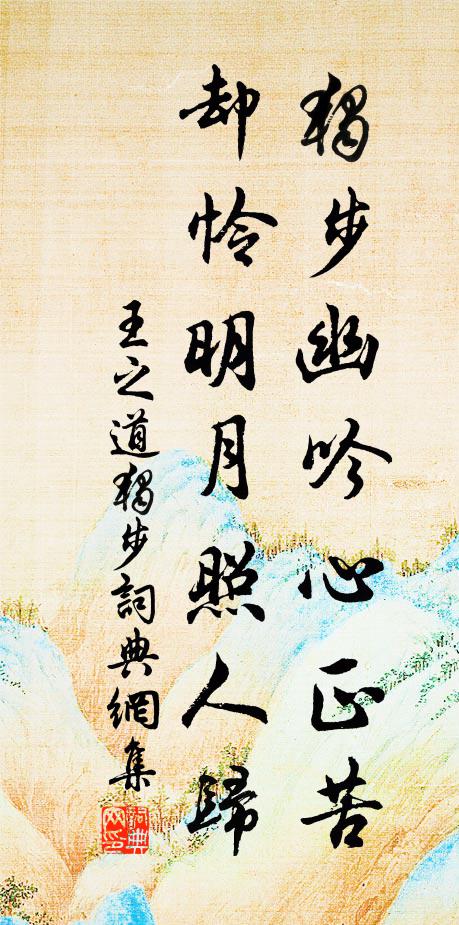 獨步幽吟心正苦
却怜明月照人歸
王之道獨步詞典網集
詞典
网印